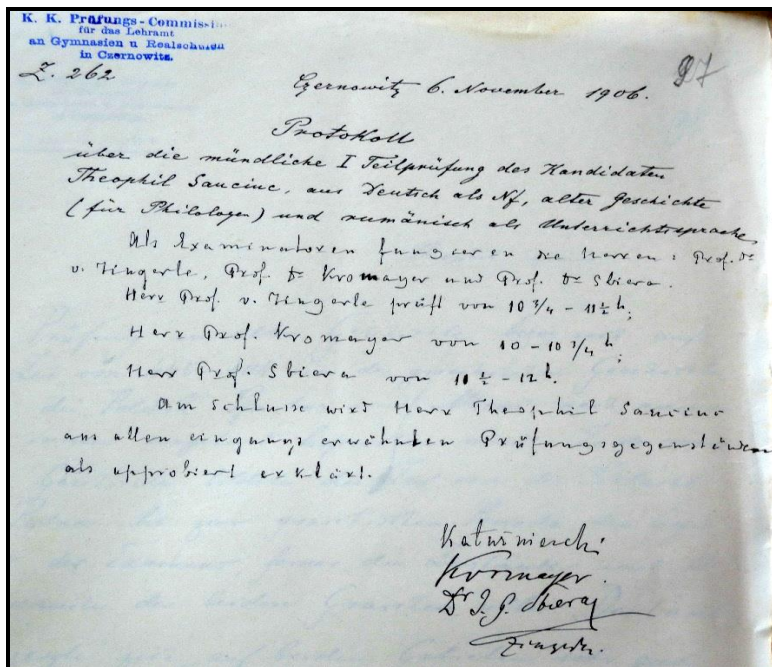 K. K. Prüfungs-Commission
für das Lehramt
an Gymnasien u Realschulen
in Czernowitz.
Z. 262
97
Czernowitz 6. November 1906.
Protokoll
über die mündliche I Teilprüfung des Kandidaten
Theophil Sauciuc, aus Deutsch als Nf, alter Geschichte
(für Philologen) und rumänisch als Unterrichtssprache
Als Examinatoren fungieren die Herren: Prof. Dr
v. Zingerle, Prof. Dr Kromayer und Prof. Dr Sbiera.
Herr Prof. v. Zingerle prüft von 10 3/4 - 11 1/2 h;
Herr Prof. Kromayer von 10 - 10 3/4 h;
Herr Prof. Sbiera von 11 1/2 - 12 h.
Am Schlusse wird Herr Theophil Sauciuc
aus allen eingangs erwähnten Prüfungsgegenständen
als approbiert erklärt.
Kałużniacki
Kromayer.
Dr I. G. Sbiera
Zingerle.